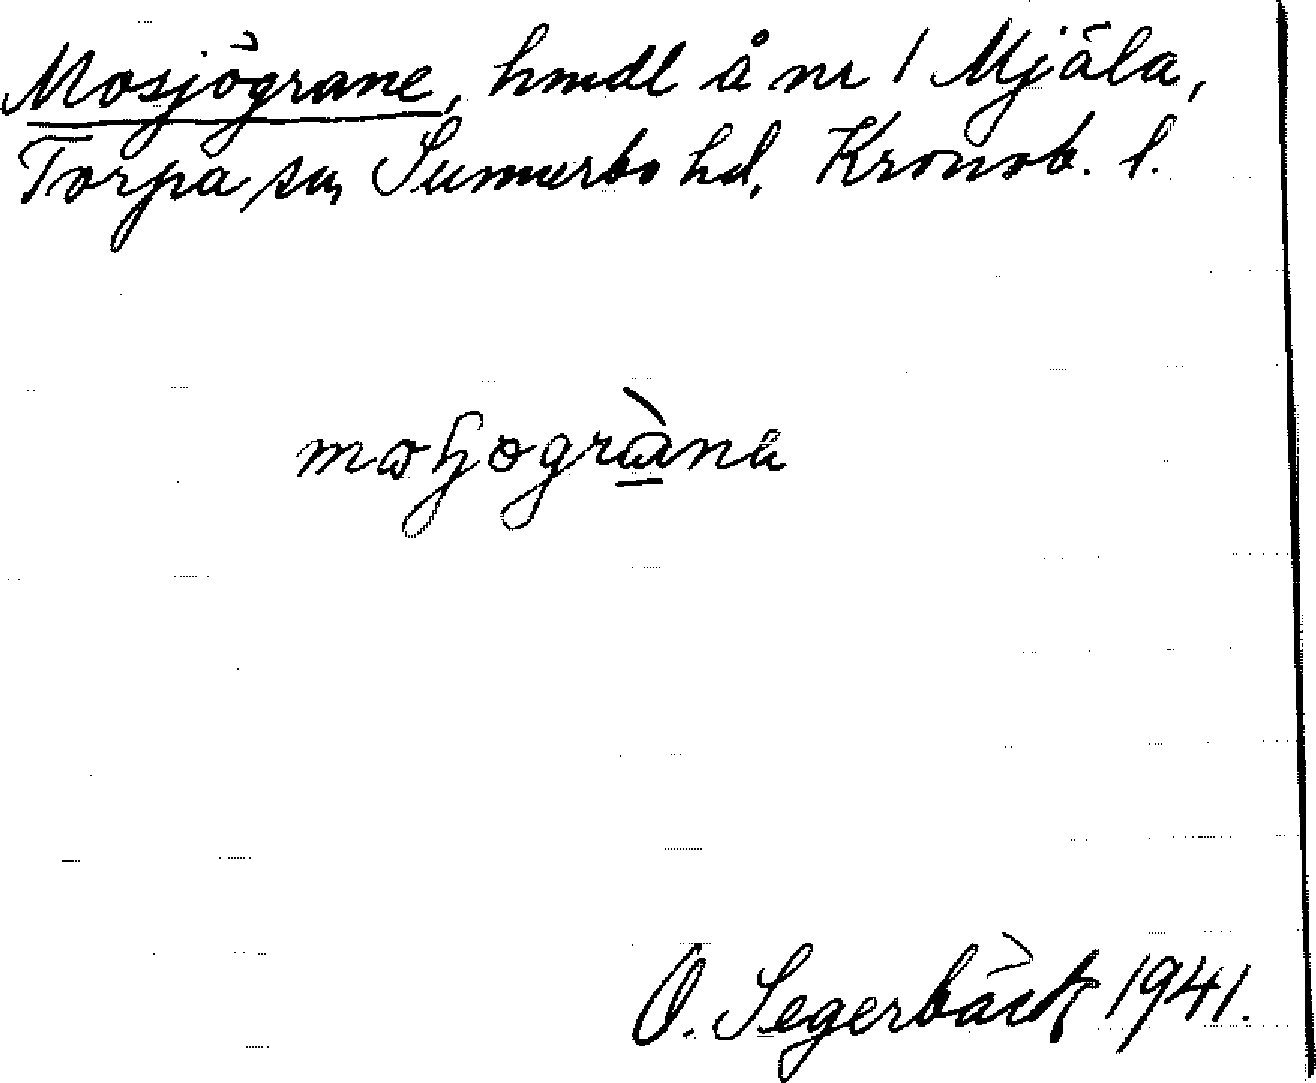 Mosjögrane, hmdl å nr 1 Mjäla,
Torpa sn, Sunnerbo hd, Kronob. l.
O. Segerbäck 1941.